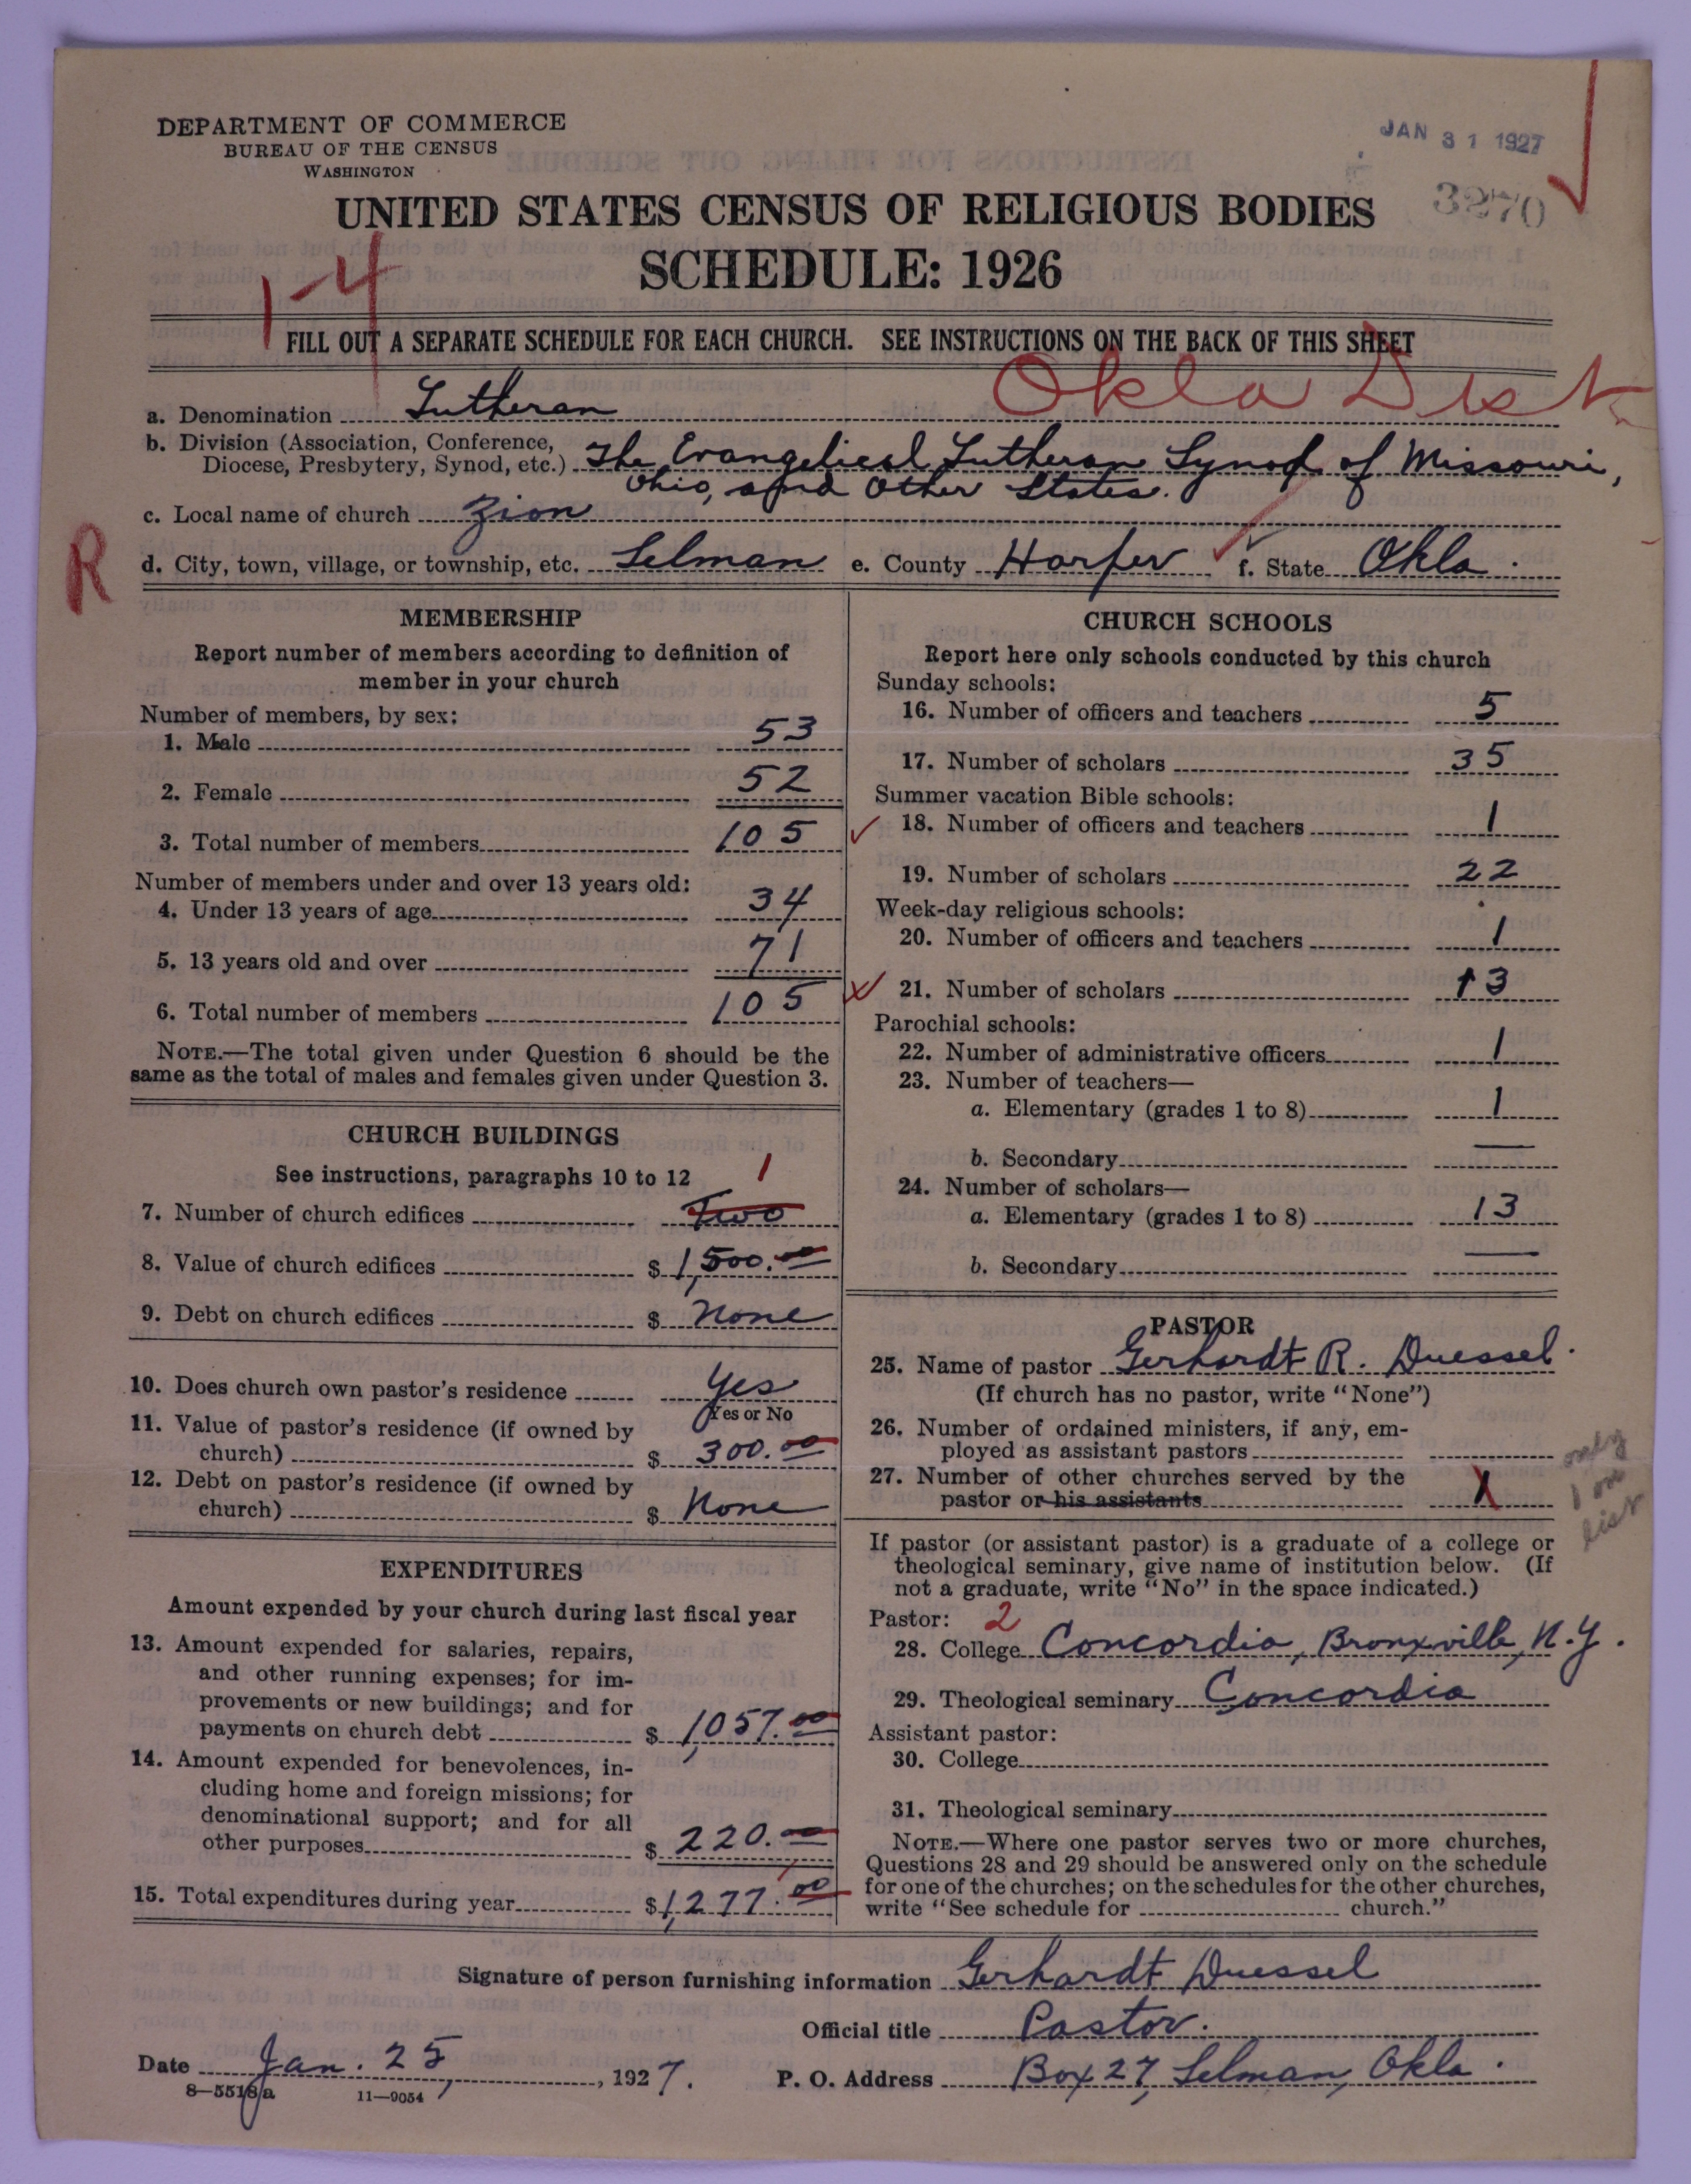 DEPARTMENT OF COMMERCE
BUREAU OF THE CENSUS
WASHINGTON
JAN 31 1927
3270
UNITED STATES CENSUS OF RELIGIOUS BODIES
SCHEDULE: 1926
1-4
FILL OUT A SEPARATE SCHEDULE FOR EACH CHURCH. SEE INSTRUCTIONS ON THE BACK OF THIS SHEET
Okla Dist
a. Denomination Lutheran
b. Division (Association, Conference,
Diocese, Presbytery, Synod, etc.) The Evangelical Lutheran Synod of Missouri,
Ohio, and Other States.
c. Local name of church Zion
R
d. City, town, village, or township, etc. Selman e. County Harper f. State Okla.
MEMBERSHIP
Report number of members according to definition of
member in your church
Number of members, by sex:
1. Male 53
2. Female 52
3. Total number of members 105
Number of members under and over 13 years old:
4. Under 13 years of age 34
5. 13 years old and over 71
6. Total number of members 105
NOTE.—The total given under Question 6 should be the
same as the total of males and females given under Question 3.
CHURCH BUILDINGS
See instructions, paragraphs 10 to 12
1
7. Number of church edifices Two
8. Value of church edifices $ 1,500.00
9. Debt on church edifices $ None
10. Does church own pastor's residence Yes
Yes or No
11. Value of pastor's residence (if owned by
church) $ 300.00
12. Debt on pastor's residence (if owned by
church) $ None
EXPENDITURES
Amount expended by your church during last fiscal year
13. Amount expended for salaries, repairs,
and other running expenses; for im-
provements or new buildings; and for
payments on church debt $ 1,057.00
14. Amount expended for benevolences, in-
cluding home and foreign missions; for
denominational support; and for all
other purposes $ 220.—
15. Total expenditures during year $ 1,277.00
CHURCH SCHOOLS
Report here only schools conducted by this church
Sunday schools:
16. Number of officers and teachers 5
17. Number of scholars 35
Summer vacation Bible schools:
18. Number of officers and teachers 1
19. Number of scholars 22
Week-day religious schools:
20. Number of officers and teachers 1
21. Number of scholars 13
Parochial schools:
22. Number of administrative officers 1
23. Number of teachers—
a. Elementary (grades 1 to 8) 1
b. Secondary —
24. Number of scholars—
a. Elementary (grades 1 to 8) 13
b. Secondary —
PASTOR
25. Name of pastor Gerhardt R. Duessel.
(If church has no pastor, write "None")
26. Number of ordained ministers, if any, em-
ployed as assistant pastors
27. Number of other churches served by the
pastor or his assistants X
only
1 on
list
If pastor (or assistant pastor) is a graduate of a college or
theological seminary, give name of institution below. (If
not a graduate, write "No" in the space indicated.)
Pastor: 2
28. College Concordia, Bronxville, N.Y.
29. Theological seminary Concordia
Assistant pastor:
30. College
31. Theological seminary
NOTE.—Where one pastor serves two or more churches,
Questions 28 and 29 should be answered only on the schedule
for one of the churches; on the schedules for the other churches,
write "See schedule for church."
Signature of person furnishing information Gerhardt Duessel
Official title Pastor.
Date Jan. 25, 1927.
P. O. Address Box 27, Selman, Okla.
8—5518a 11—9054